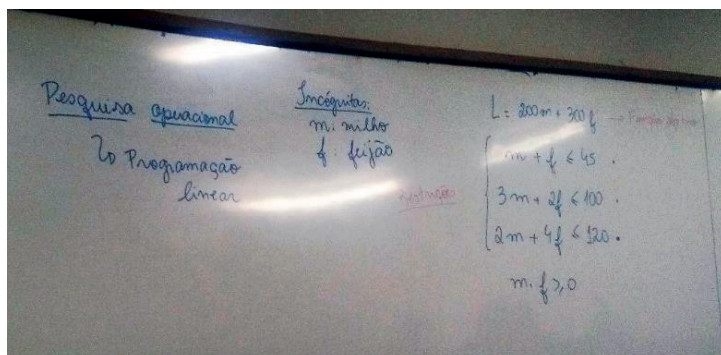 Pesquisa operacional
↳ Programação
linear
Incógnitas:
m: milho
f: feijão
L = 200m + 300f → Função objetivo
restrições
m + f ≤ 45
3m + 2f ≤ 100
2m + 4f ≤ 120
m, f ≥ 0